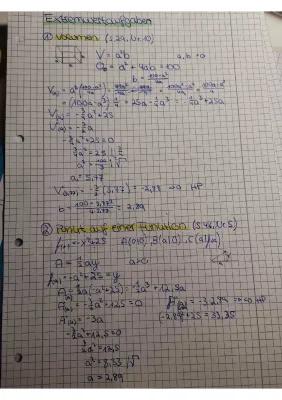 Extremwertaufgaben
① Volumen (S.29, Nr.10)
V = a²b   a, b > 0
O = a² + 4ab = 100
b = (100-a²)/4a
V(a) = a² · (100-a²)/4a
= (100a - a³) · 1/4 = 25a - 1/4a³ = -1/4a³ + 25a
V'(a) = -3/4a² + 25
V''(a) = -3/2a
-3/4a² + 25 = 0
3/4a² = 25
a² = 100/3 |√
a = 5,77
b = (100 - 5,77²)/(4·5,77) = 2,89
② Punkt auf einer Funktion (S.46, Nr.5)
f(x) = -x² + 25   A(0|0), B(a|0), C(a|f(a))
A = 1/2 ay
f(a) = -a² + 25 = y
A(a) = 1/2a(-a² + 25) = -1/2a³ + 12,5a
A'(a) = -3/2a² + 12,5 = 0
A''(a) = -3a
-3/2a² + 12,5 = 0
3/2a² = 12,5
a² = 8,33 |√
a = 2,89